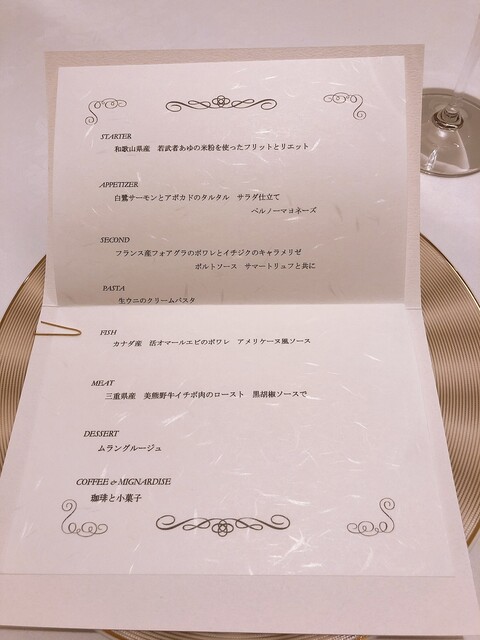 STARTER
和歌山県産　若武者あゆの米粉を使ったフリットとリエット
APPETIZER
白鷺サーモンとアボカドのタルタル　サラダ仕立て
ペルノーマヨネーズ
SECOND
フランス産フォアグラのポワレとイチジクのキャラメリゼ
ポルトソース　サマートリュフと共に
PASTA
生ウニのクリームパスタ
FISH
カナダ産　活オマールエビのポワレ　アメリケーヌ風ソース
MEAT
三重県産　美熊野牛イチボ肉のロースト　黒胡椒ソースで
DESSERT
ムラングルージュ
COFFEE & MIGNARDISE
珈琲と小菓子